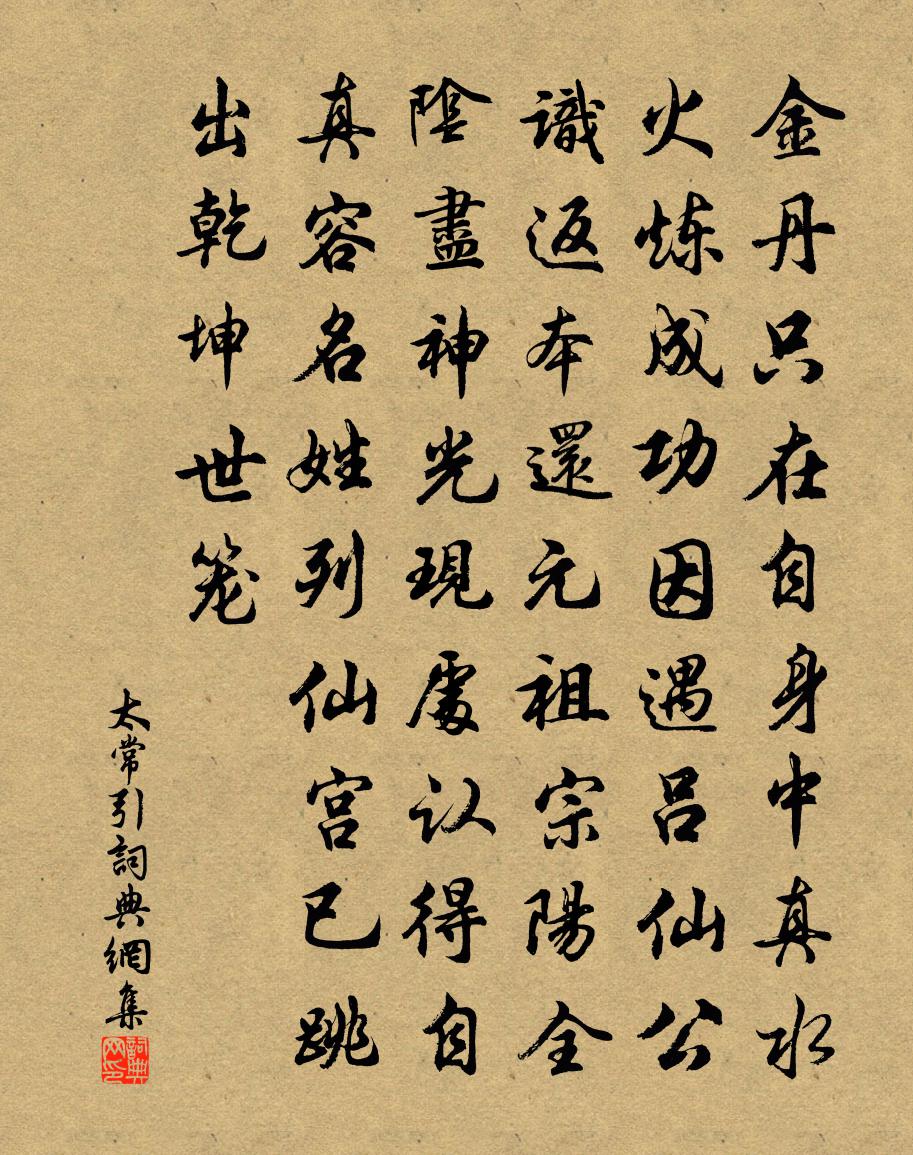 金丹只在自身中真水
火炼成功因遇吕仙公
識返本還元祖宗陽全
陰盡神光現處认得自
真容名姓列仙宫已跳
出乾坤世笼
太常引詞典網集
詞典网印